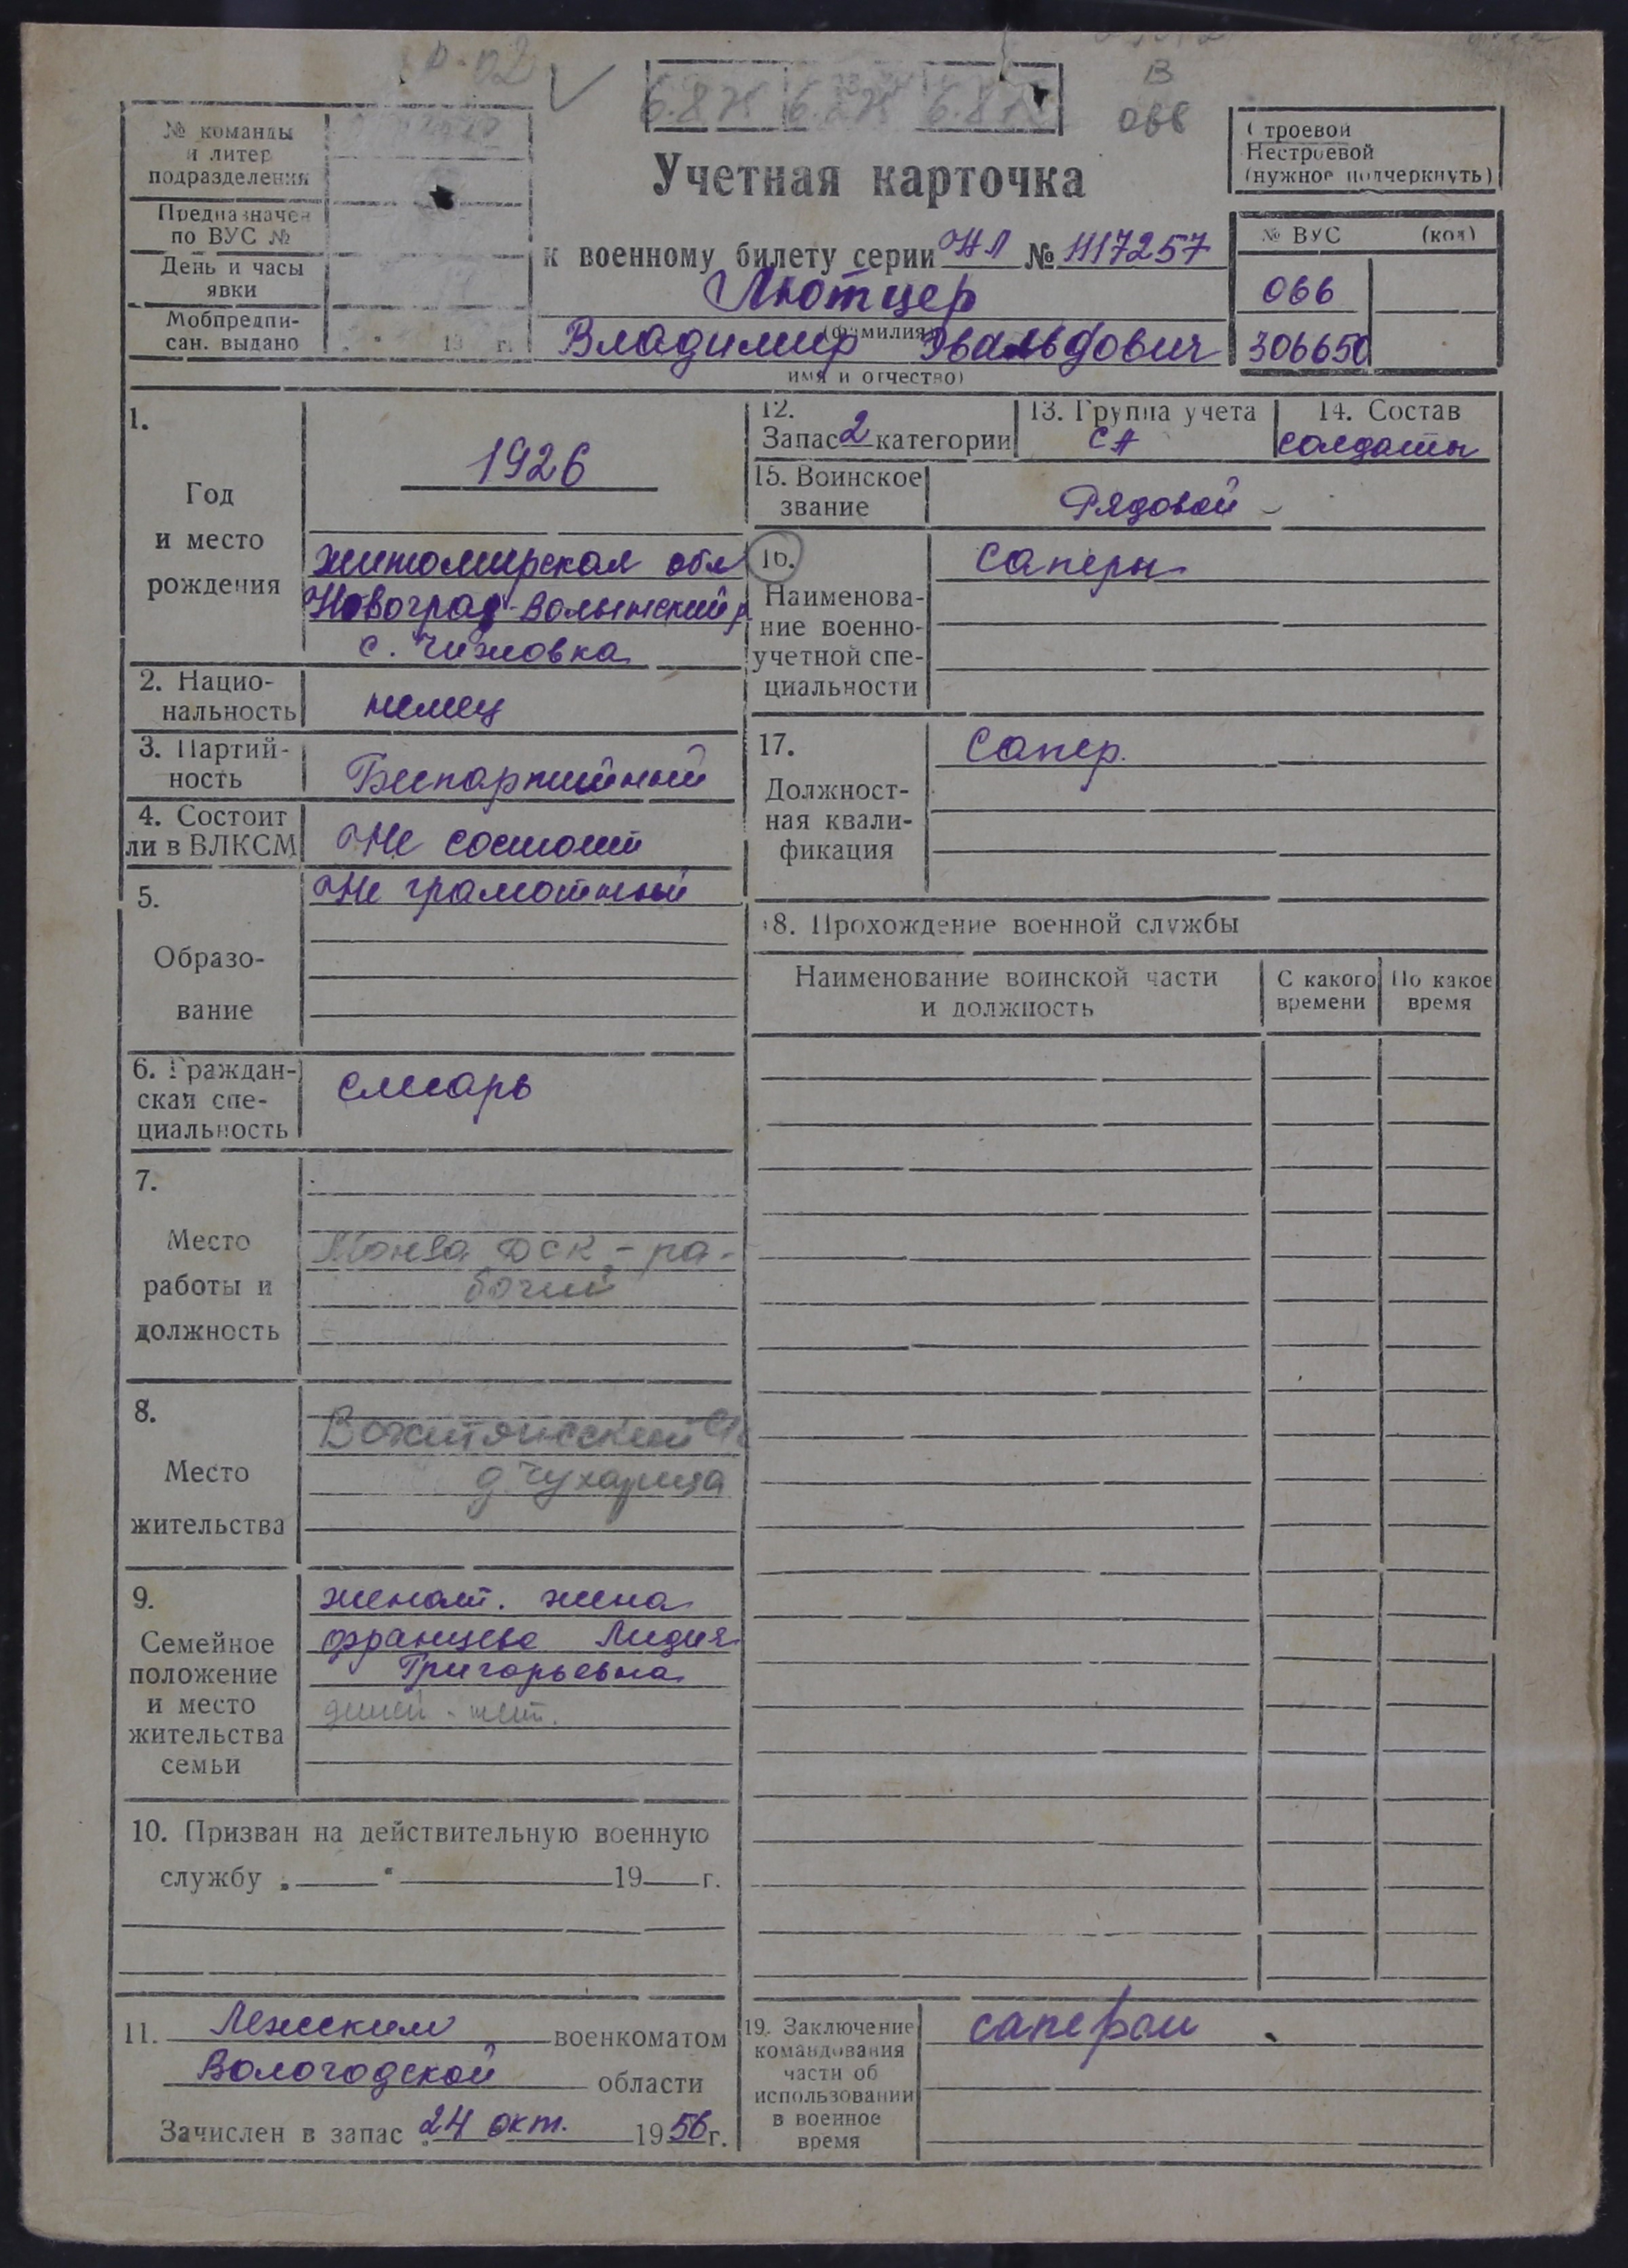 В
066
№ команды
и литер
подразделения
Предназначен
по ВУС №
День и часы
явки
Мобпредпи-
сан. выдано
19 г.
Учетная карточка
к военному билету серии НЛ № 1117257
Лютцер
(фамилия)
Владимир Эвальдович
имя и отчество)
Строевой
Нестроевой
(нужное подчеркнуть)
№ ВУС (код)
066
306650
1.
Год
и место
рождения
1926
житомирская обл
Новоград-Волынский р
с. Чижовка
2. Нацио-
нальность
немец
3. Партий-
ность
Беспартийный
4. Состоит
ли в ВЛКСМ
Не состоит
5.
Образо-
вание
Не грамотный
6. Граждан-
ская спе-
циальность
слесарь
7.
Место
работы и
должность
ДСК - ра-
бочий
8.
Место
жительства
д Чухарица
9.
Семейное
положение
и место
жительства
семьи
женат. жена
францева Лидия
Григорьевна
детей - нет.
10. Призван на действительную военную
службу „ “ 19 г.
11. Лежским военкоматом
Вологодской области
Зачислен в запас 24 окт. 1956 г.
12.
Запас 2 категории
13. Группа учета
СА
14. Состав
солдаты
15. Воинское
звание
Рядовой
16.
Наименова-
ние военно-
учетной спе-
циальности
саперы
17.
Должност-
ная квали-
фикация
Сапер.
18. Прохождение военной службы
Наименование воинской части
и должность
С какого
времени
По какое
время
19. Заключение
командования
части об
использовании
в военное
время
сапером